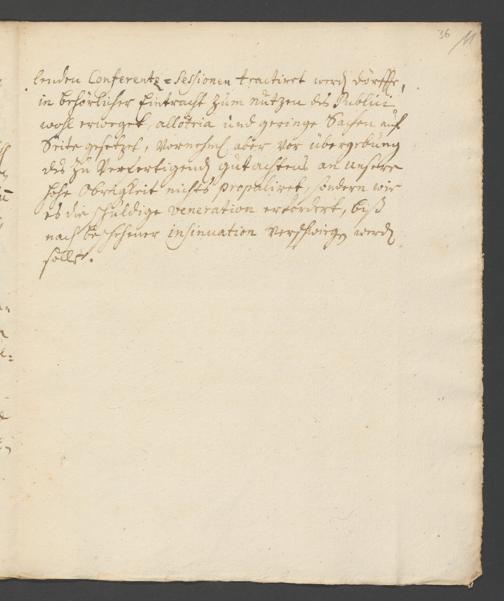 36
11
lenden Conferentz-Sessionen tractiret werden dörffte,
in behörlicher Eintracht zum nutzen des Publici
wohl erweget, allotria und geringe Sachen auf
Seite gesetzet, Vornehml. aber vor übergebung
des zu Verfertigenden gutachtens an Unsere
hohe Obrigkeit nichts propaliret, sondern wie
es die schuldige veneration erfordert, biß
nach beschehener insinuation verschwiegen werden
solle.